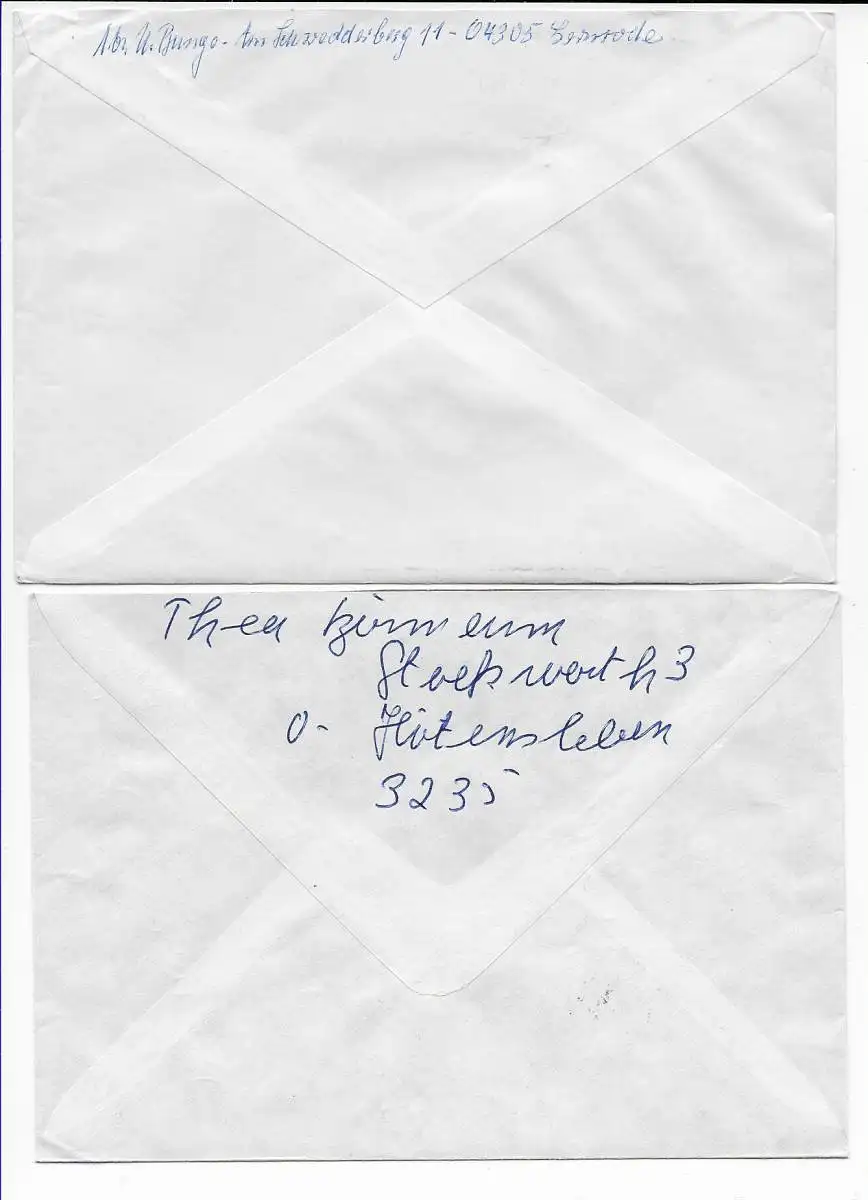 Abs. U. Bunge - Am Schwedderberg 11 - O4305 Gernrode
Thea
Stockwarth 3
O- Hötensleben
3235